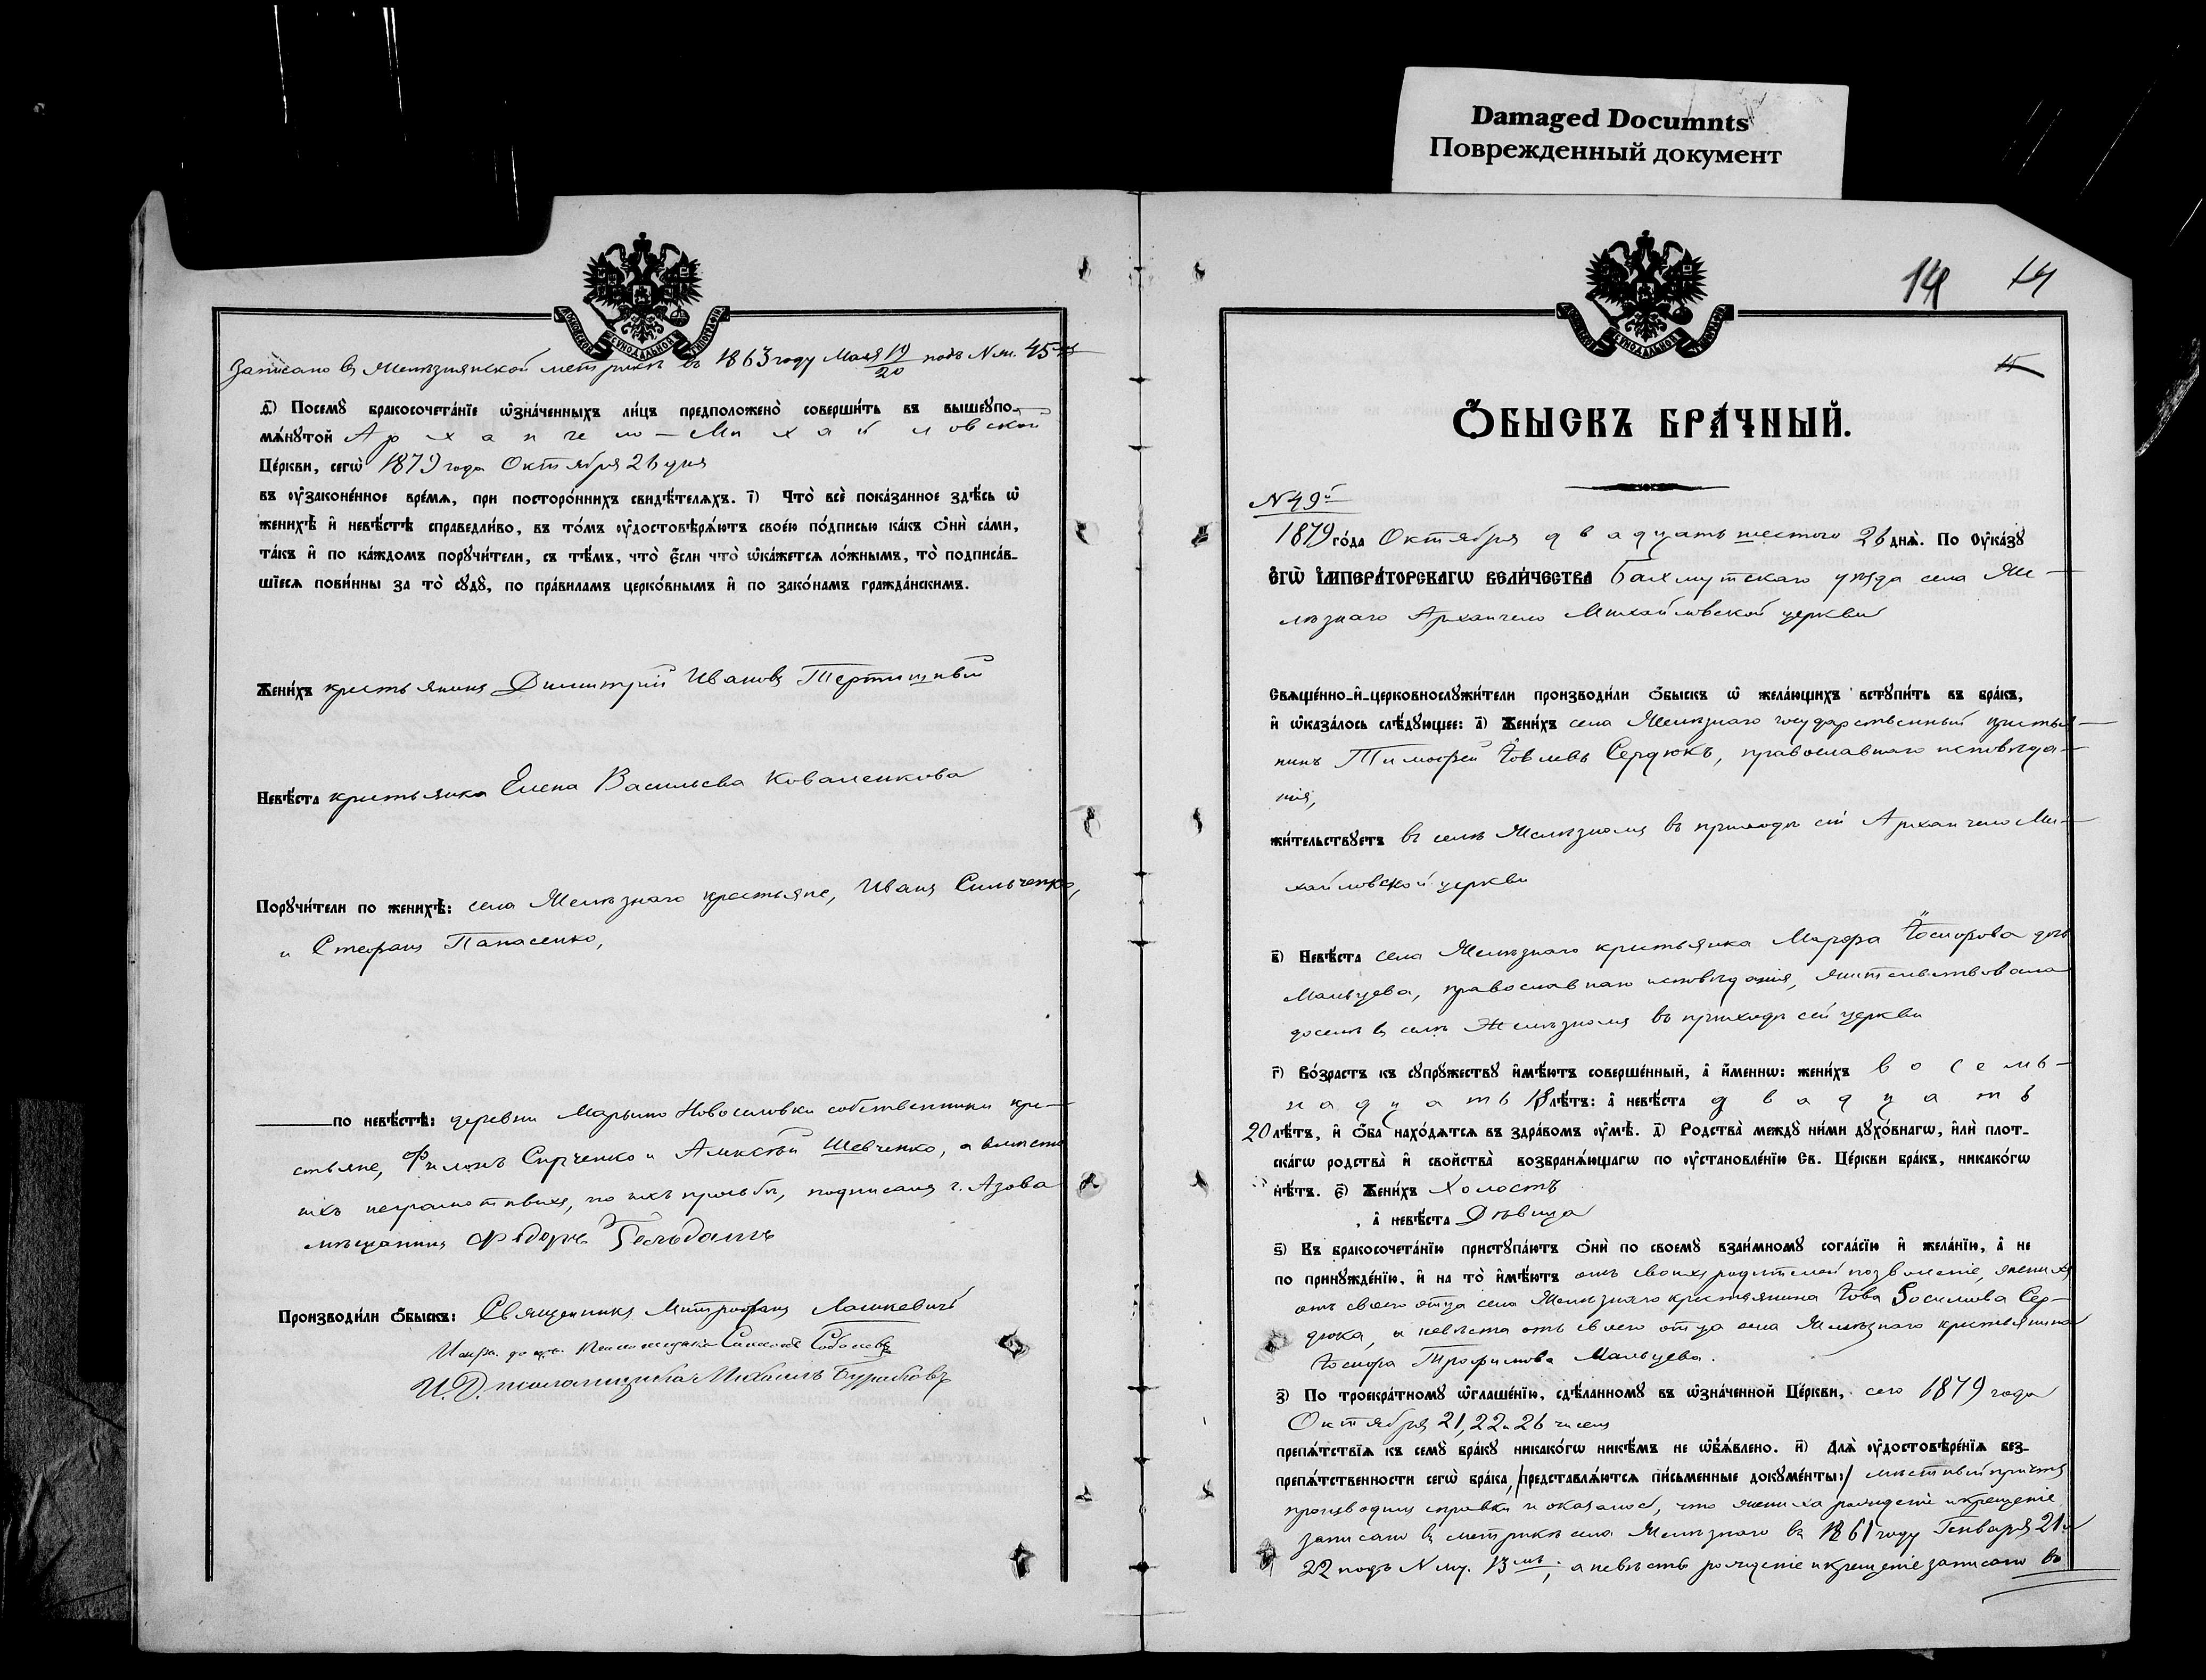 Damaged Documnts
Поврежденный документ
Записано въ Желѣзнянской метрикѣ въ 1863 году Мая 19/20 подъ N м. 45мъ
д҃) Посемꙋ̀ бракосочета́нїе ѡ҆зна́ченныхъ ли́цъ предположено̀ соверши́ть въ вышеꙋпо-
мѧ́нꙋтой Архангело-Михайловской
Це́ркви, сегѡ̀ 1879 года Октября 26 дня
въ ᲂу҆законе́нное вре́мѧ, при посторо́ннихъ свидѣ́телѧхъ. і҃) Что̀ всѐ пока́занное здѣ́сь ѡ҆
женихѣ̀ и҆ невѣ́стѣ справедли́во, въ то́мъ ᲂу҆достовѣрѧ́ютъ свое́ю по́дписью ка́къ ѻ҆нѝ са́ми,
та́къ и҆ по ка́ждомъ порꙋчи́тели, съ тѣ́мъ, что̀ є҆́сли что̀ ѡ҆ка́жетсѧ ло́жнымъ, то̀ подписа́в-
шїесѧ пови́нны за то̀ сꙋдꙋ̀, по пра́виламъ церко́внымъ и҆ по зако́намъ гражда́нскимъ.
Жени́хъ крестьянинъ Димитрій Ивановъ Тертишный
Невѣ́ста крестьянка Елена Васильева Коваленкова
Порꙋчи́тели по женихѣ̀: села Желѣзнаго крестьяне, Иванъ Сильченко,
и Стефанъ Панасенко,
по невѣ́стѣ: деревни Марьино Новоселовки собственники кре-
стьяне, Филонъ Сирченко и Алексѣй Шевченко, а вместо
ихъ неграмотныхъ, по ихъ прозьбѣ, подписалъ г. Азова
мѣщанинъ Ѳедоръ
Производи́ли ѻ҆́быскъ: Священникъ Митрофанъ Лашкевичъ
И. Д. псаломщика Михаилъ
14 14
15
Ѻ҆́БЫСКЪ БРА́ЧНЫЙ.
N 49й
1879 го́да Октября двадцать шестого 26 днѧ̀. По ᲂу҆ка́зꙋ
Є҆гѡ̀ И҆мпера́торскагѡ Вели́чества Бахмутскаго уѣзда села Же-
лѣзнаго Архангело Михайловской церкви
Свѧще́нно-и҆-церковнослꙋжи́тели производи́ли ѻ҆́быскъ ѡ҆ жела́ющихъ встꙋпи́ть въ бра́къ,
и҆ ѡ҆каза́лось слѣ́дꙋющее: а҃) Жени́хъ села Желѣзнаго государственный крестья-
нинъ Тимофей Іовлевъ Сердюкъ, православнаго исповѣда-
нія,
жи́тельствꙋетъ въ селѣ Желѣзномъ въ приходѣ сей Архангело Ми-
хайловской церкви
в҃) Невѣ́ста села Желѣзнаго крестьянка Марфа Іосифова дочь
Мальцева, православнаго исповѣданія, жительствовала
доселѣ въ селѣ Желѣзномъ въ приходѣ сей церкви
г҃) Во́зрастъ къ сꙋпрꙋ́жествꙋ и҆мѣ́ютъ соверше́нный, а҆ и҆́меннѡ: жени́хъ восемь-
надцать 18 лѣ́тъ: а҆ невѣ́ста двадцать
20 лѣ́тъ, и҆ ѻ҆́ба нахо́дѧтсѧ въ здра́вомъ ᲂу҆мѣ̀. д҃) Родства̀ междꙋ ни́ми дꙋхо́внагѡ, и҆лѝ плот-
ска́гѡ родства̀ и҆ свойства̀ возбранѧ́ющагѡ по ᲂу҆становле́нїю Св. Це́ркви бра́къ, никако́гѡ
нѣ́тъ. є҃) Жени́хъ Холостъ
, а҆ невѣ́ста Дѣвица
ѕ҃) Къ бракосочета́нїю пристꙋпа́ютъ ѻ҆нѝ по своемꙋ̀ взаи́мномꙋ согла́сїю и҆ жела́нїю, а҆ не
по принꙋжде́нїю, и҆ на то̀ и҆мѣ́ютъ отъ своихъ родителей позволеніе, женихъ
отъ своего отца села Желѣзнаго крестьянина Іова Сер-
дюка, а невѣста отъ своего отца села Желѣзнаго крестьянина
Іосифа Трофимова Мальцева.
з҃) По троекра́тномꙋ ѡ҆глаше́нїю, сдѣ́ланномꙋ въ ѡ҆зна́ченной Це́ркви, сего 1879 года
Октября 21, 22 и 26 чиселъ
препѧ́тствїѧ къ семꙋ̀ бра́кꙋ никако́гѡ никѣ́мъ не ѡ҆б̾ѧ́влено. и҃) Длѧ̀ ᲂу҆достовѣре́нїѧ без-
препѧ́тственности сегѡ̀ бра́ка, /представлѧ́ютсѧ пи́сьменные докꙋме́нты:/ мѣстный причтъ
производилъ справки и оказалось, что жениха рожденіе и крещеніе
записано въ метрикѣ села Желѣзнаго въ 1861 году Генваря 21 и
22 подъ N му. 13мъ, а невѣсты рожденіе и крещеніе записано въ